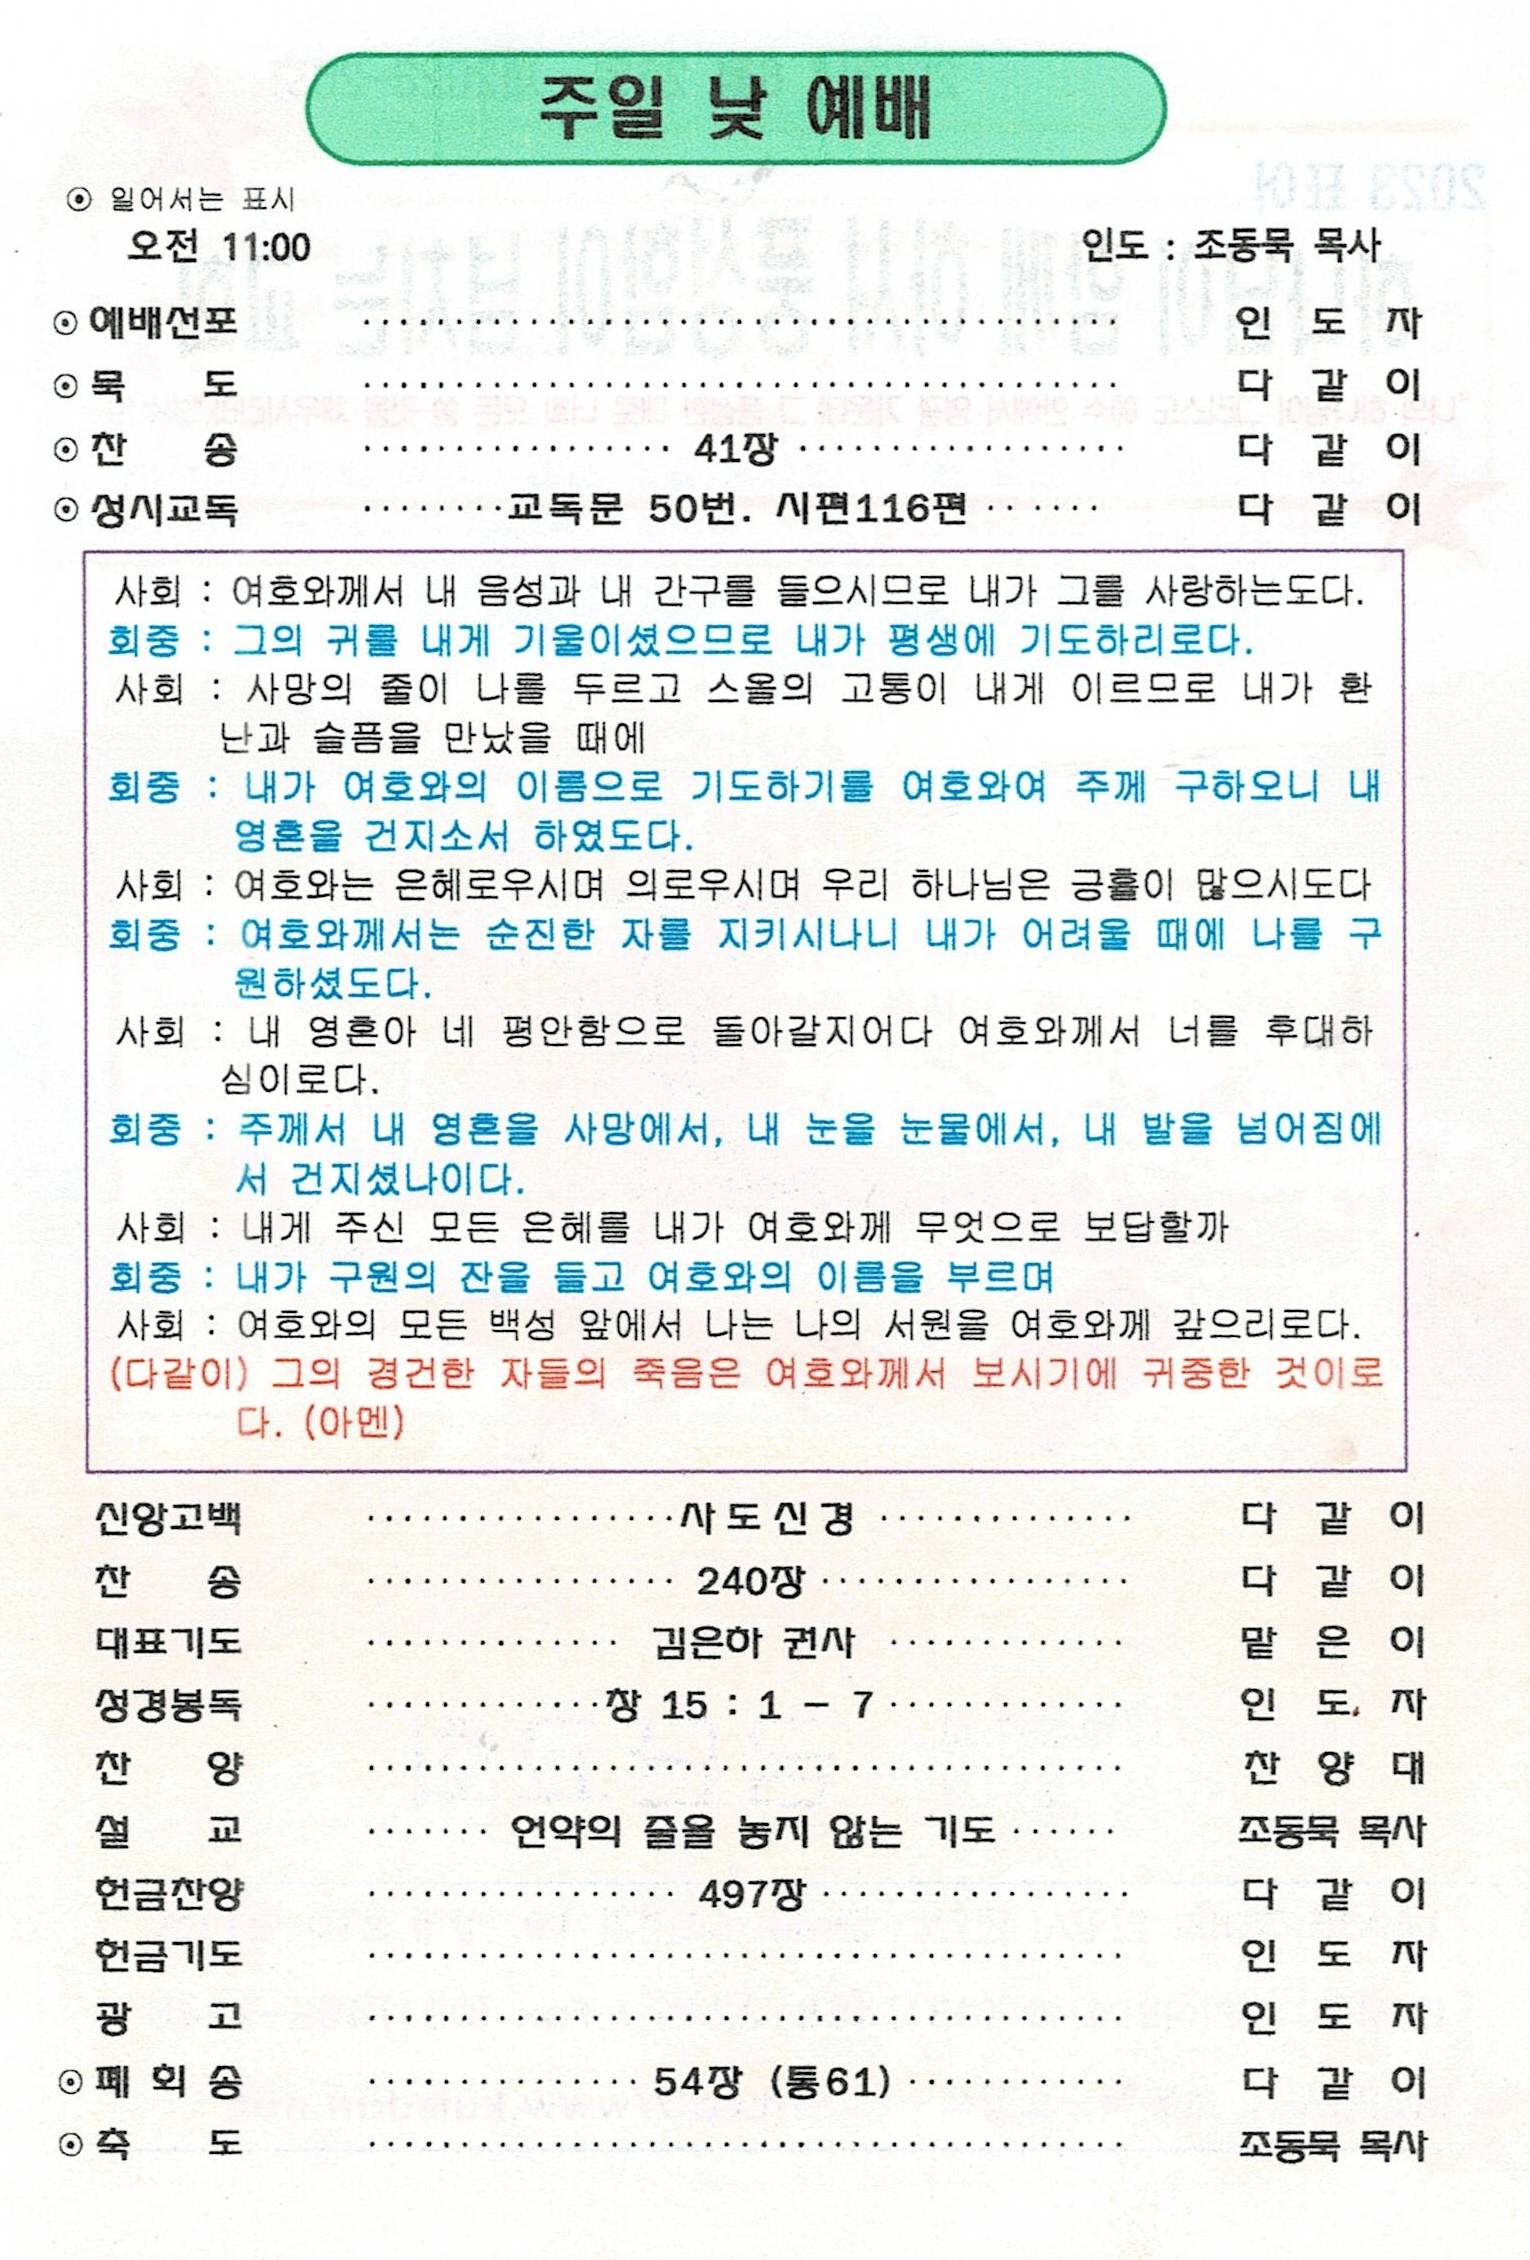 주일 낮 예배
⊙ 일어서는 표시
오전 11:00 인도 : 조동묵 목사
⊙ 예배선포 ········································ 인 도 자
⊙ 묵 도 ········································ 다 같 이
⊙ 찬 송 ················· 41장 ·················· 다 같 이
⊙ 성시교독 ········교독문 50번. 시편116편 ······ 다 같 이
사회 : 여호와께서 내 음성과 내 간구를 들으시므로 내가 그를 사랑하는도다.
회중 : 그의 귀를 내게 기울이셨으므로 내가 평생에 기도하리로다.
사회 : 사망의 줄이 나를 두르고 스올의 고통이 내게 이르므로 내가 환
난과 슬픔을 만났을 때에
회중 : 내가 여호와의 이름으로 기도하기를 여호와여 주께 구하오니 내
영혼을 건지소서 하였도다.
사회 : 여호와는 은혜로우시며 의로우시며 우리 하나님은 긍휼이 많으시도다
회중 : 여호와께서는 순진한 자를 지키시나니 내가 어려울 때에 나를 구
원하셨도다.
사회 : 내 영혼아 네 평안함으로 돌아갈지어다 여호와께서 너를 후대하
심이로다.
회중 : 주께서 내 영혼을 사망에서, 내 눈을 눈물에서, 내 발을 넘어짐에
서 건지셨나이다.
사회 : 내게 주신 모든 은혜를 내가 여호와께 무엇으로 보답할까
회중 : 내가 구원의 잔을 들고 여호와의 이름을 부르며
사회 : 여호와의 모든 백성 앞에서 나는 나의 서원을 여호와께 갚으리로다.
(다같이) 그의 경건한 자들의 죽음은 여호와께서 보시기에 귀중한 것이로
다. (아멘)
신앙고백 ·················사도신경 ·············· 다 같 이
찬 송 ················· 240장 ················· 다 같 이
대표기도 ·············· 김은하 권사 ············· 맡 은 이
성경봉독 ·············창 15 : 1 – 7 ············· 인 도 자
찬 양 ········································ 찬 양 대
설 교 ······· 언약의 줄을 놓지 않는 기도 ······ 조동묵 목사
헌금찬양 ················· 497장 ················· 다 같 이
헌금기도 ········································ 인 도 자
광 고 ········································ 인 도 자
⊙ 폐 회 송 ··············· 54장 (통61) ············ 다 같 이
⊙ 축 도 ········································ 조동묵 목사